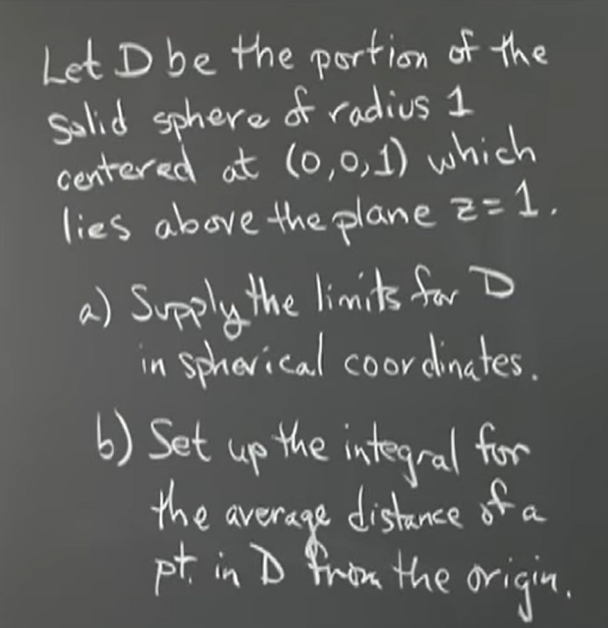 Let D be the portion of the
solid sphere of radius 1
centered at (0,0,1) which
lies above the plane z=1.
a) Supply the limits for D
in spherical coordinates.
b) Set up the integral for
the average distance of a
pt. in D from the origin.